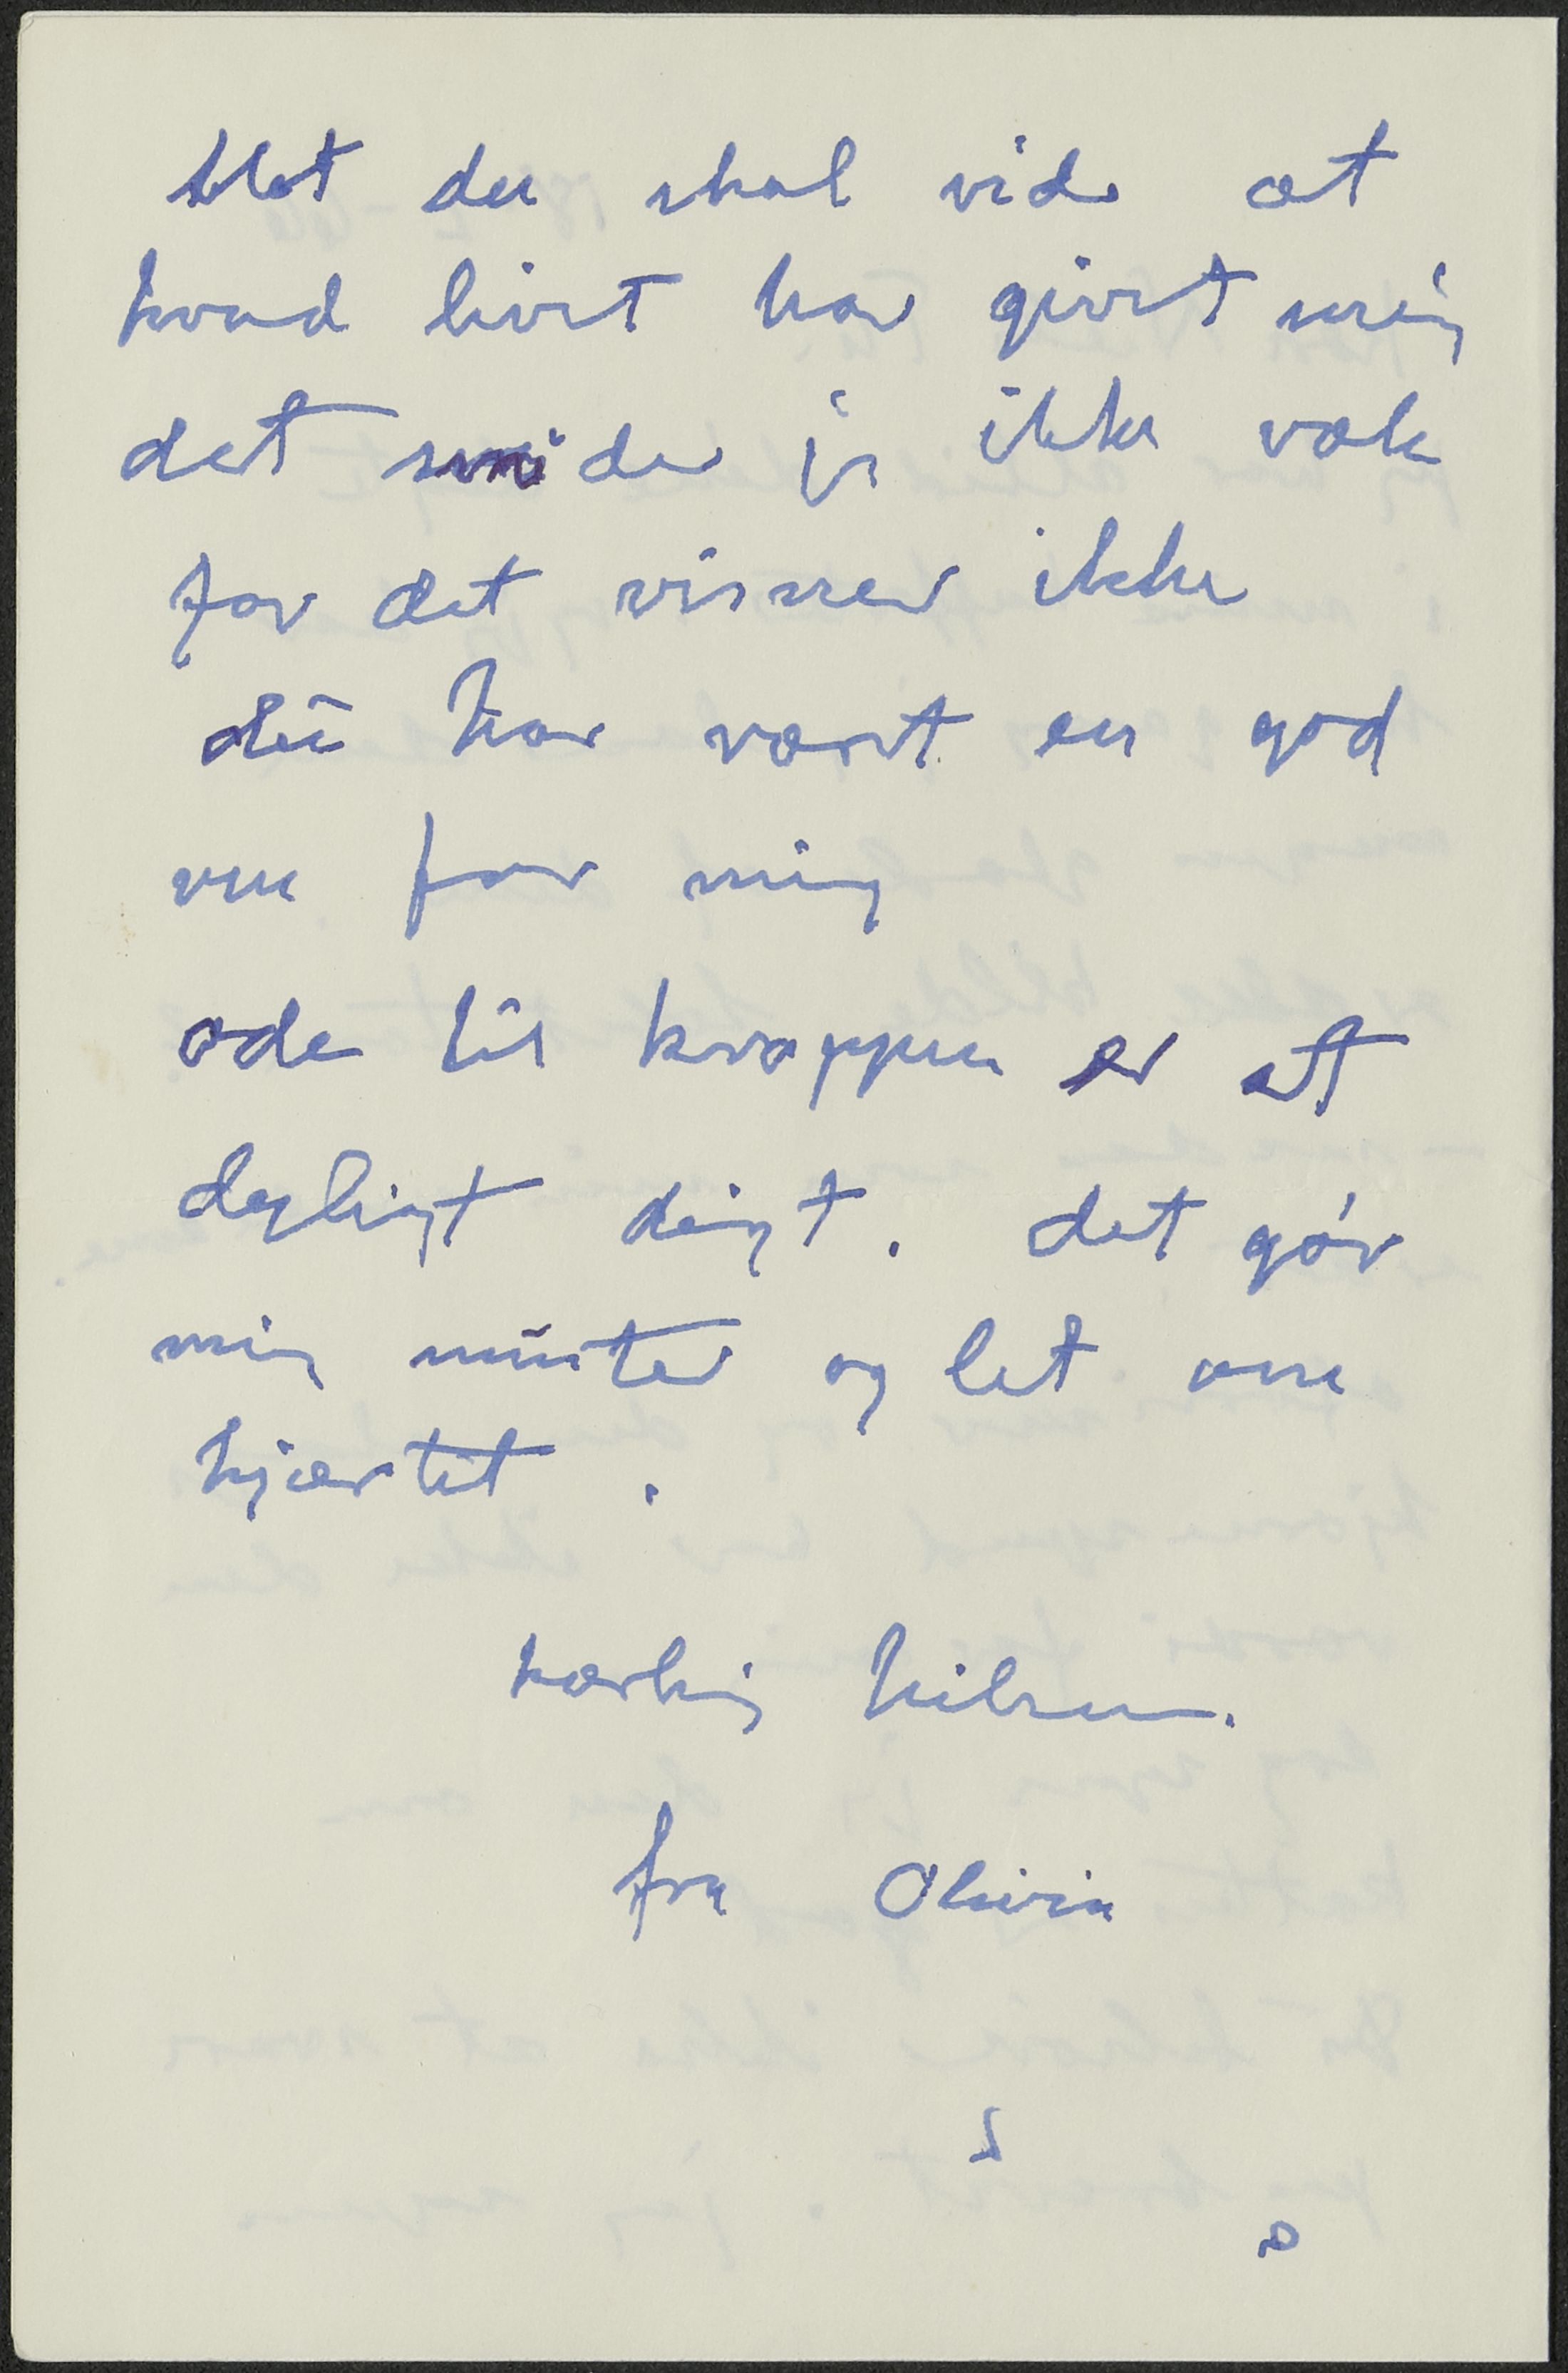 blot du skal vide at
hvad livet har givet mig
det smider jeg ikke væk
for det visner ikke
du har været en god
ven for mig
ode til kroppen er et
dejligt digt. det gør
mig munter og let om
hjærtet.
kærlig hilsen.
fra Olivia